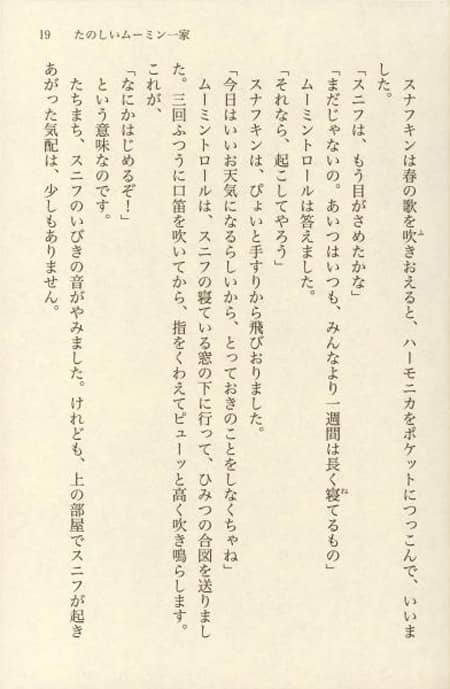 19 たのしいムーミン一家
スナフキンは春の歌を吹きおえると、ハーモニカをポケットにつっこんで、いいま
した。
「スニフは、もう目がさめたかな」
「まだじゃないの。あいつはいつも、みんなより一週間は長く寝てるもの」
ムーミントロールは答えました。
「それなら、起こしてやろう」
スナフキンは、ぴょいと手すりから飛びおりました。
「今日はいいお天気になるらしいから、とっておきのことをしなくちゃね」
ムーミントロールは、スニフの寝ている窓の下に行って、ひみつの合図を送りまし
た。三回ふつうに口笛を吹いてから、指をくわえてピューッと高く吹き鳴らします。
これが、
「なにかはじめるぞ!」
という意味なのです。
たちまち、スニフのいびきの音がやみました。けれども、上の部屋でスニフが起き
あがった気配は、少しもありません。